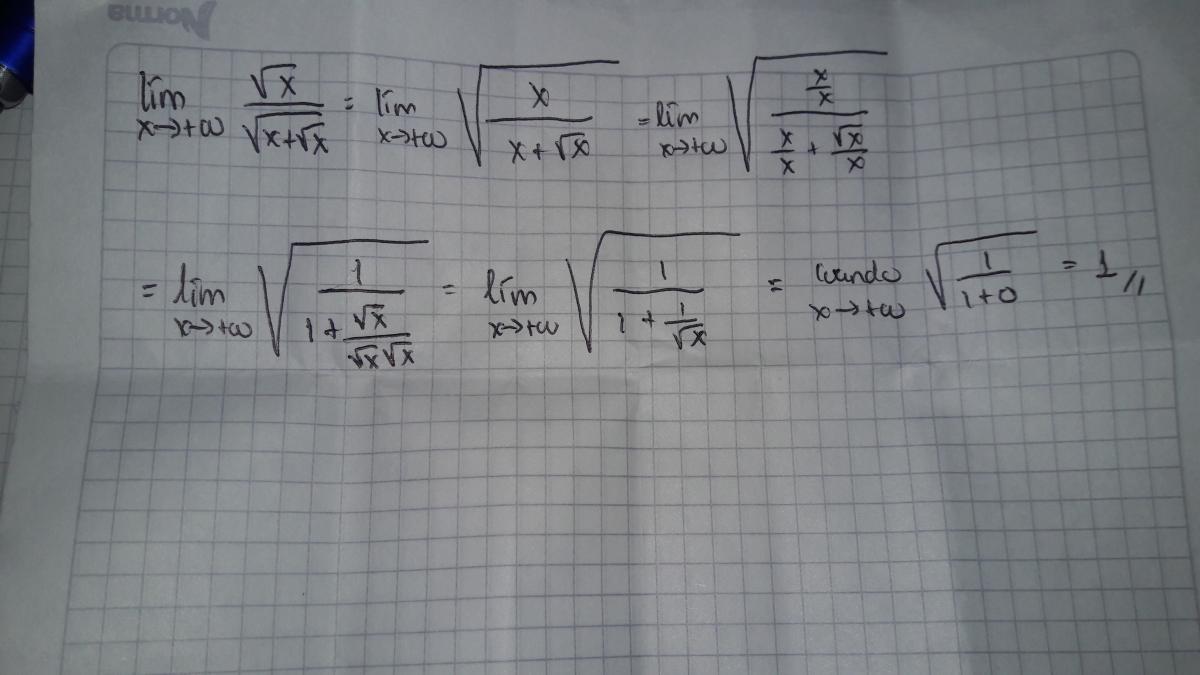 Norma
lím x→+∞ √x/√(x+√x) = lím x→+∞ √(x/(x+√x)) = lím x→+∞ √((x/x)/(x/x + √x/x))
= lím x→+∞ √(1/(1+√x/(√x√x))) = lím x→+∞ √(1/(1+1/√x)) = cuando x→+∞ √(1/(1+0)) = 1 //